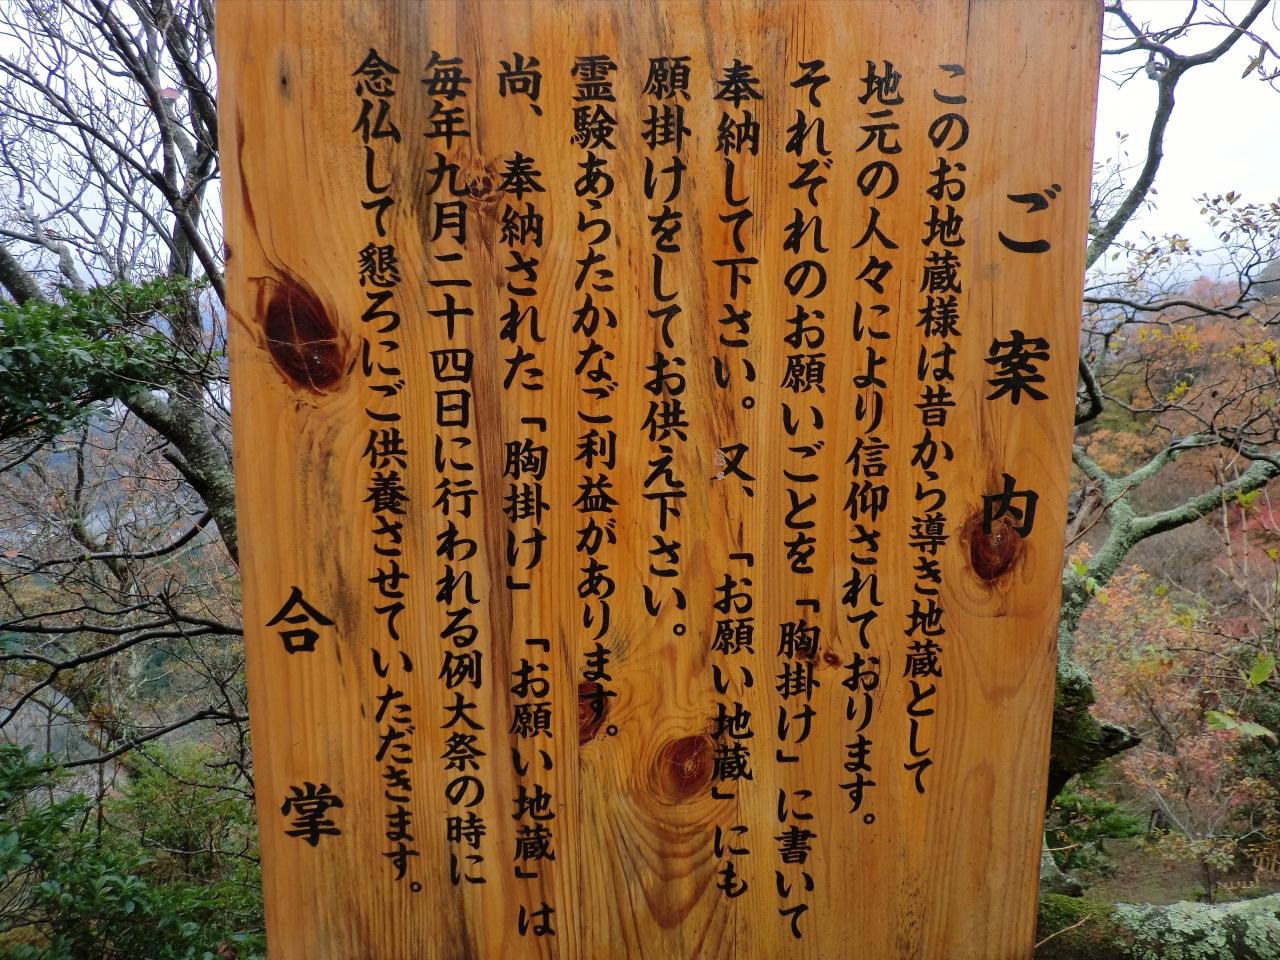 ご案内
このお地蔵様は昔から導き地蔵として
地元の人々により信仰されております。
それぞれのお願いごとを「胸掛け」に書いて
奉納して下さい。又、「お願い地蔵」にも
願掛けをしてお供え下さい。
霊験あらたかなご利益があります。
尚、奉納された「胸掛け」「お願い地蔵」は
毎年九月二十四日に行われる例大祭の時に
念仏して懇ろにご供養させていただきます。
合掌